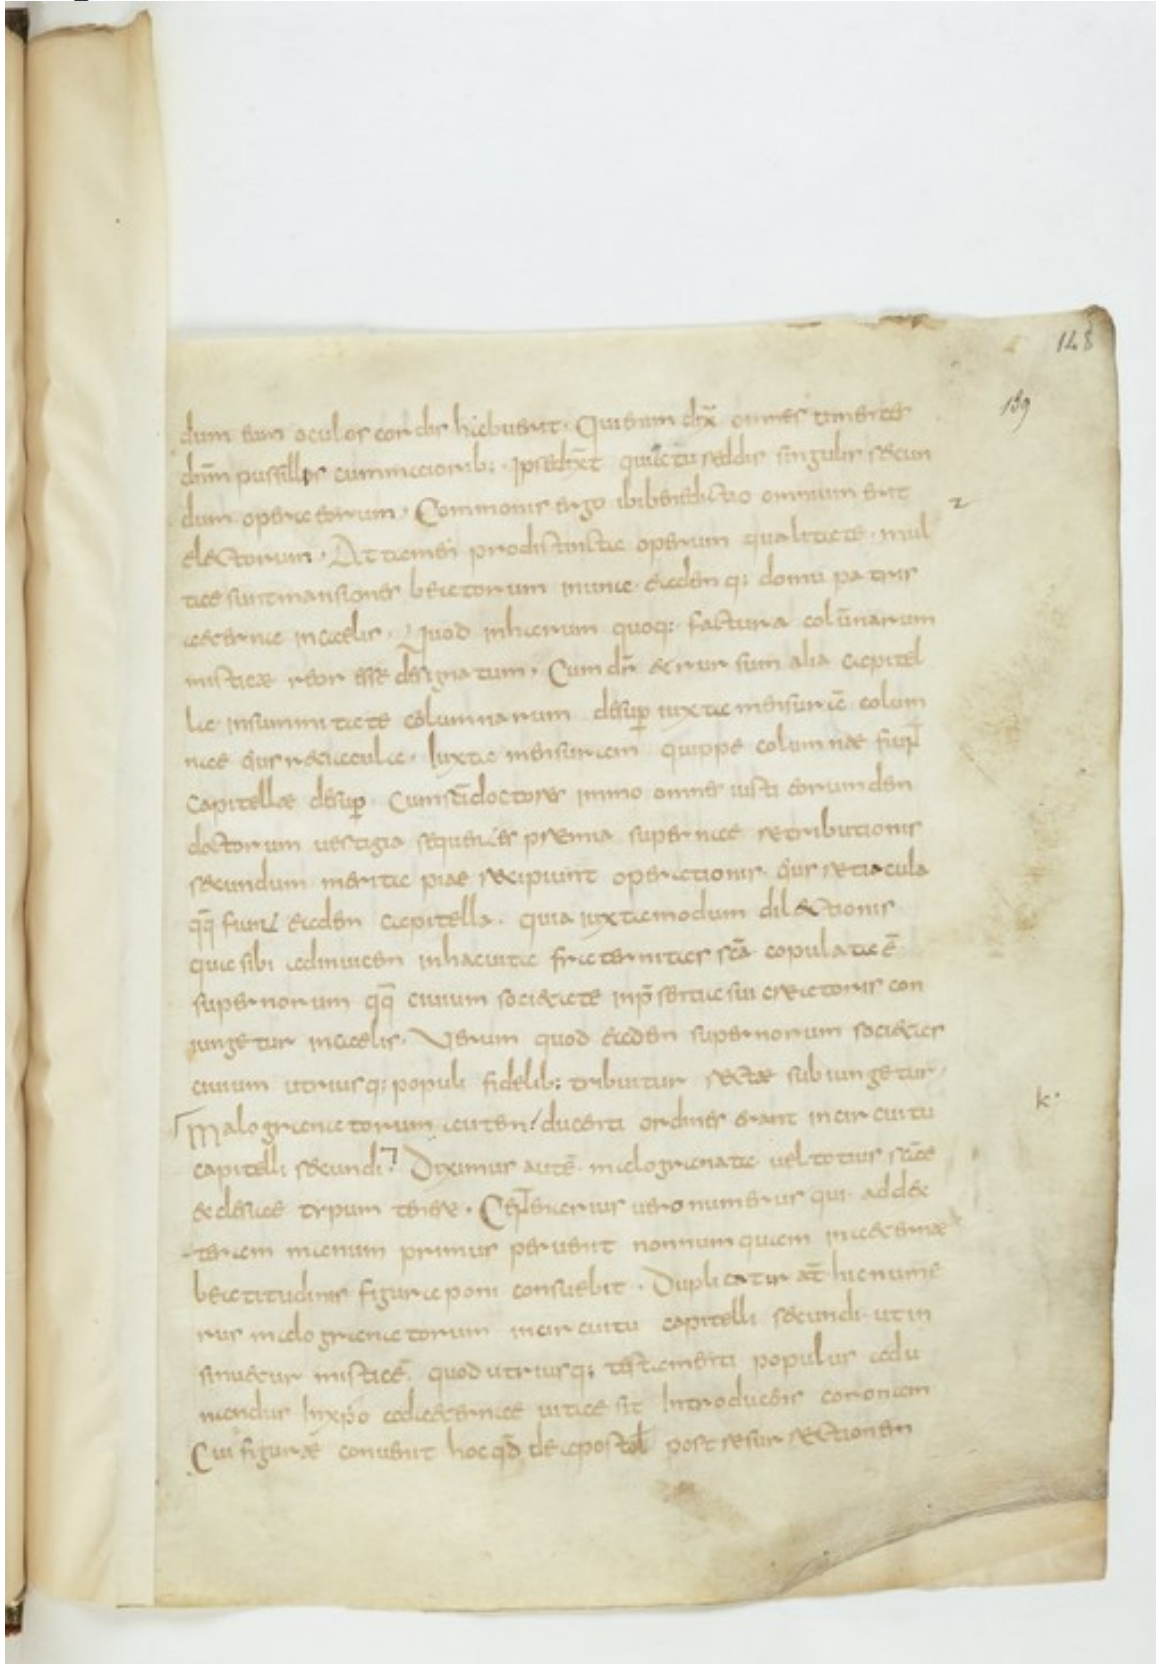 148
139
dum eum oculos cordis habuerit. Qui enim dix̄ omnes timentes
dn̄m pussillos cum maiorib; ipse dix̄t quia tu reddis singulis secun
dum opera eorum. Commonis ergo ibi benedictio omnium erit
2
electorum. Attamen pro distinctia operum qualitate. mul
tae sunt mansiones beatorum in una eademq; domu patris
aeterna in caelis. Quod in harum quoq; factura colūnarum
misticae reor esse designatum. Cum dr̄ et rursum alia capitel
la in summitate columnarum desuꝑ iuxta mensurā colum
nae
Iuxta mensuram quippe columnae
Capitellae desuꝑ. Cum sc̄i doctores immo omnes iusti eorundem
doctorum vestigia sequentes premia supernae retributionis
secundum merita piae recipiunt operationis.
eadem capitella. quia iuxta modum dilectionis
quae sibi ad invicem in hac vita fraternitas sc̄a copulata ē.
supernorum qq̄ civium societate in p̄sentia sui creatoris con
iungetur in caelis. Verum quod eadem supernorum societas
civium utriusq; populi fidelib; tribuitur recte subiungetur.
Malogranatorum autem ducenti ordines erant in circuitu
k.
capitelli secundi. Diximus autē malogranata vel totius sc̄ae
ecclesiae typum tenere. Centenarius vero numerus qui ad dex
teram manum primus pervenit nonnumquam in aeternae
beatitudinis figura poni consuebit. Duplicatur aūt hic nume
rus malogranatorum in circuitu capitelli secundi. ut in
sinuetur misticę. quod utriusq; testamenti populus adu
nandus in xp̄o ad aeternae vitae sit introducens coronam
Cui figurae convenit hoc qd̄ de apostol post resurrectionem